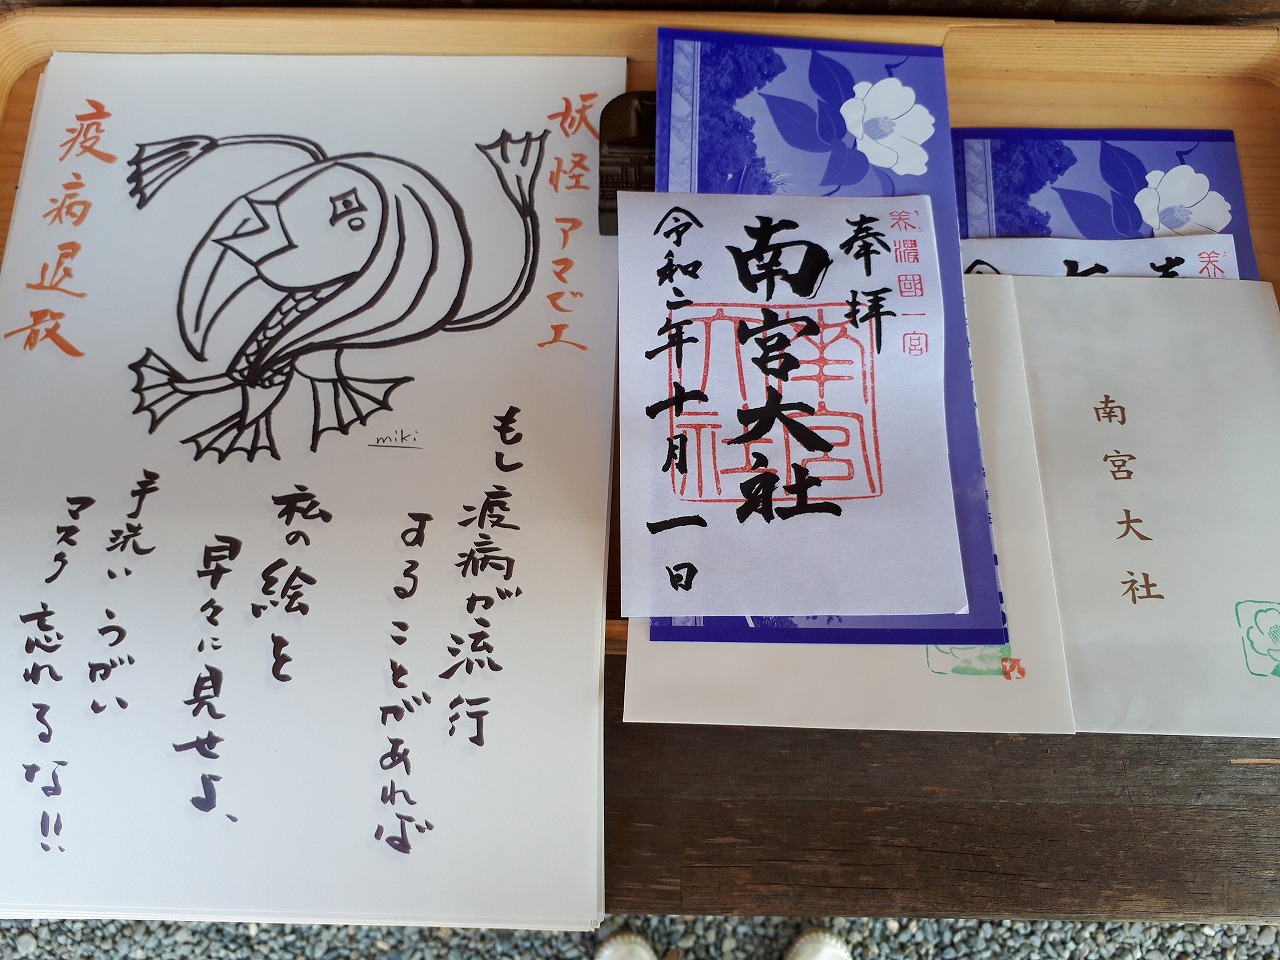 妖怪アマビエ
疫病退散
miki
もし疫病が流行
することがあれば
私の絵を
早々に見せよ、
手洗いうがい
マスク忘れるな!!
美濃國一宮
奉拝
南宮大社
南宮大社
令和二年十月一日
南宮大社